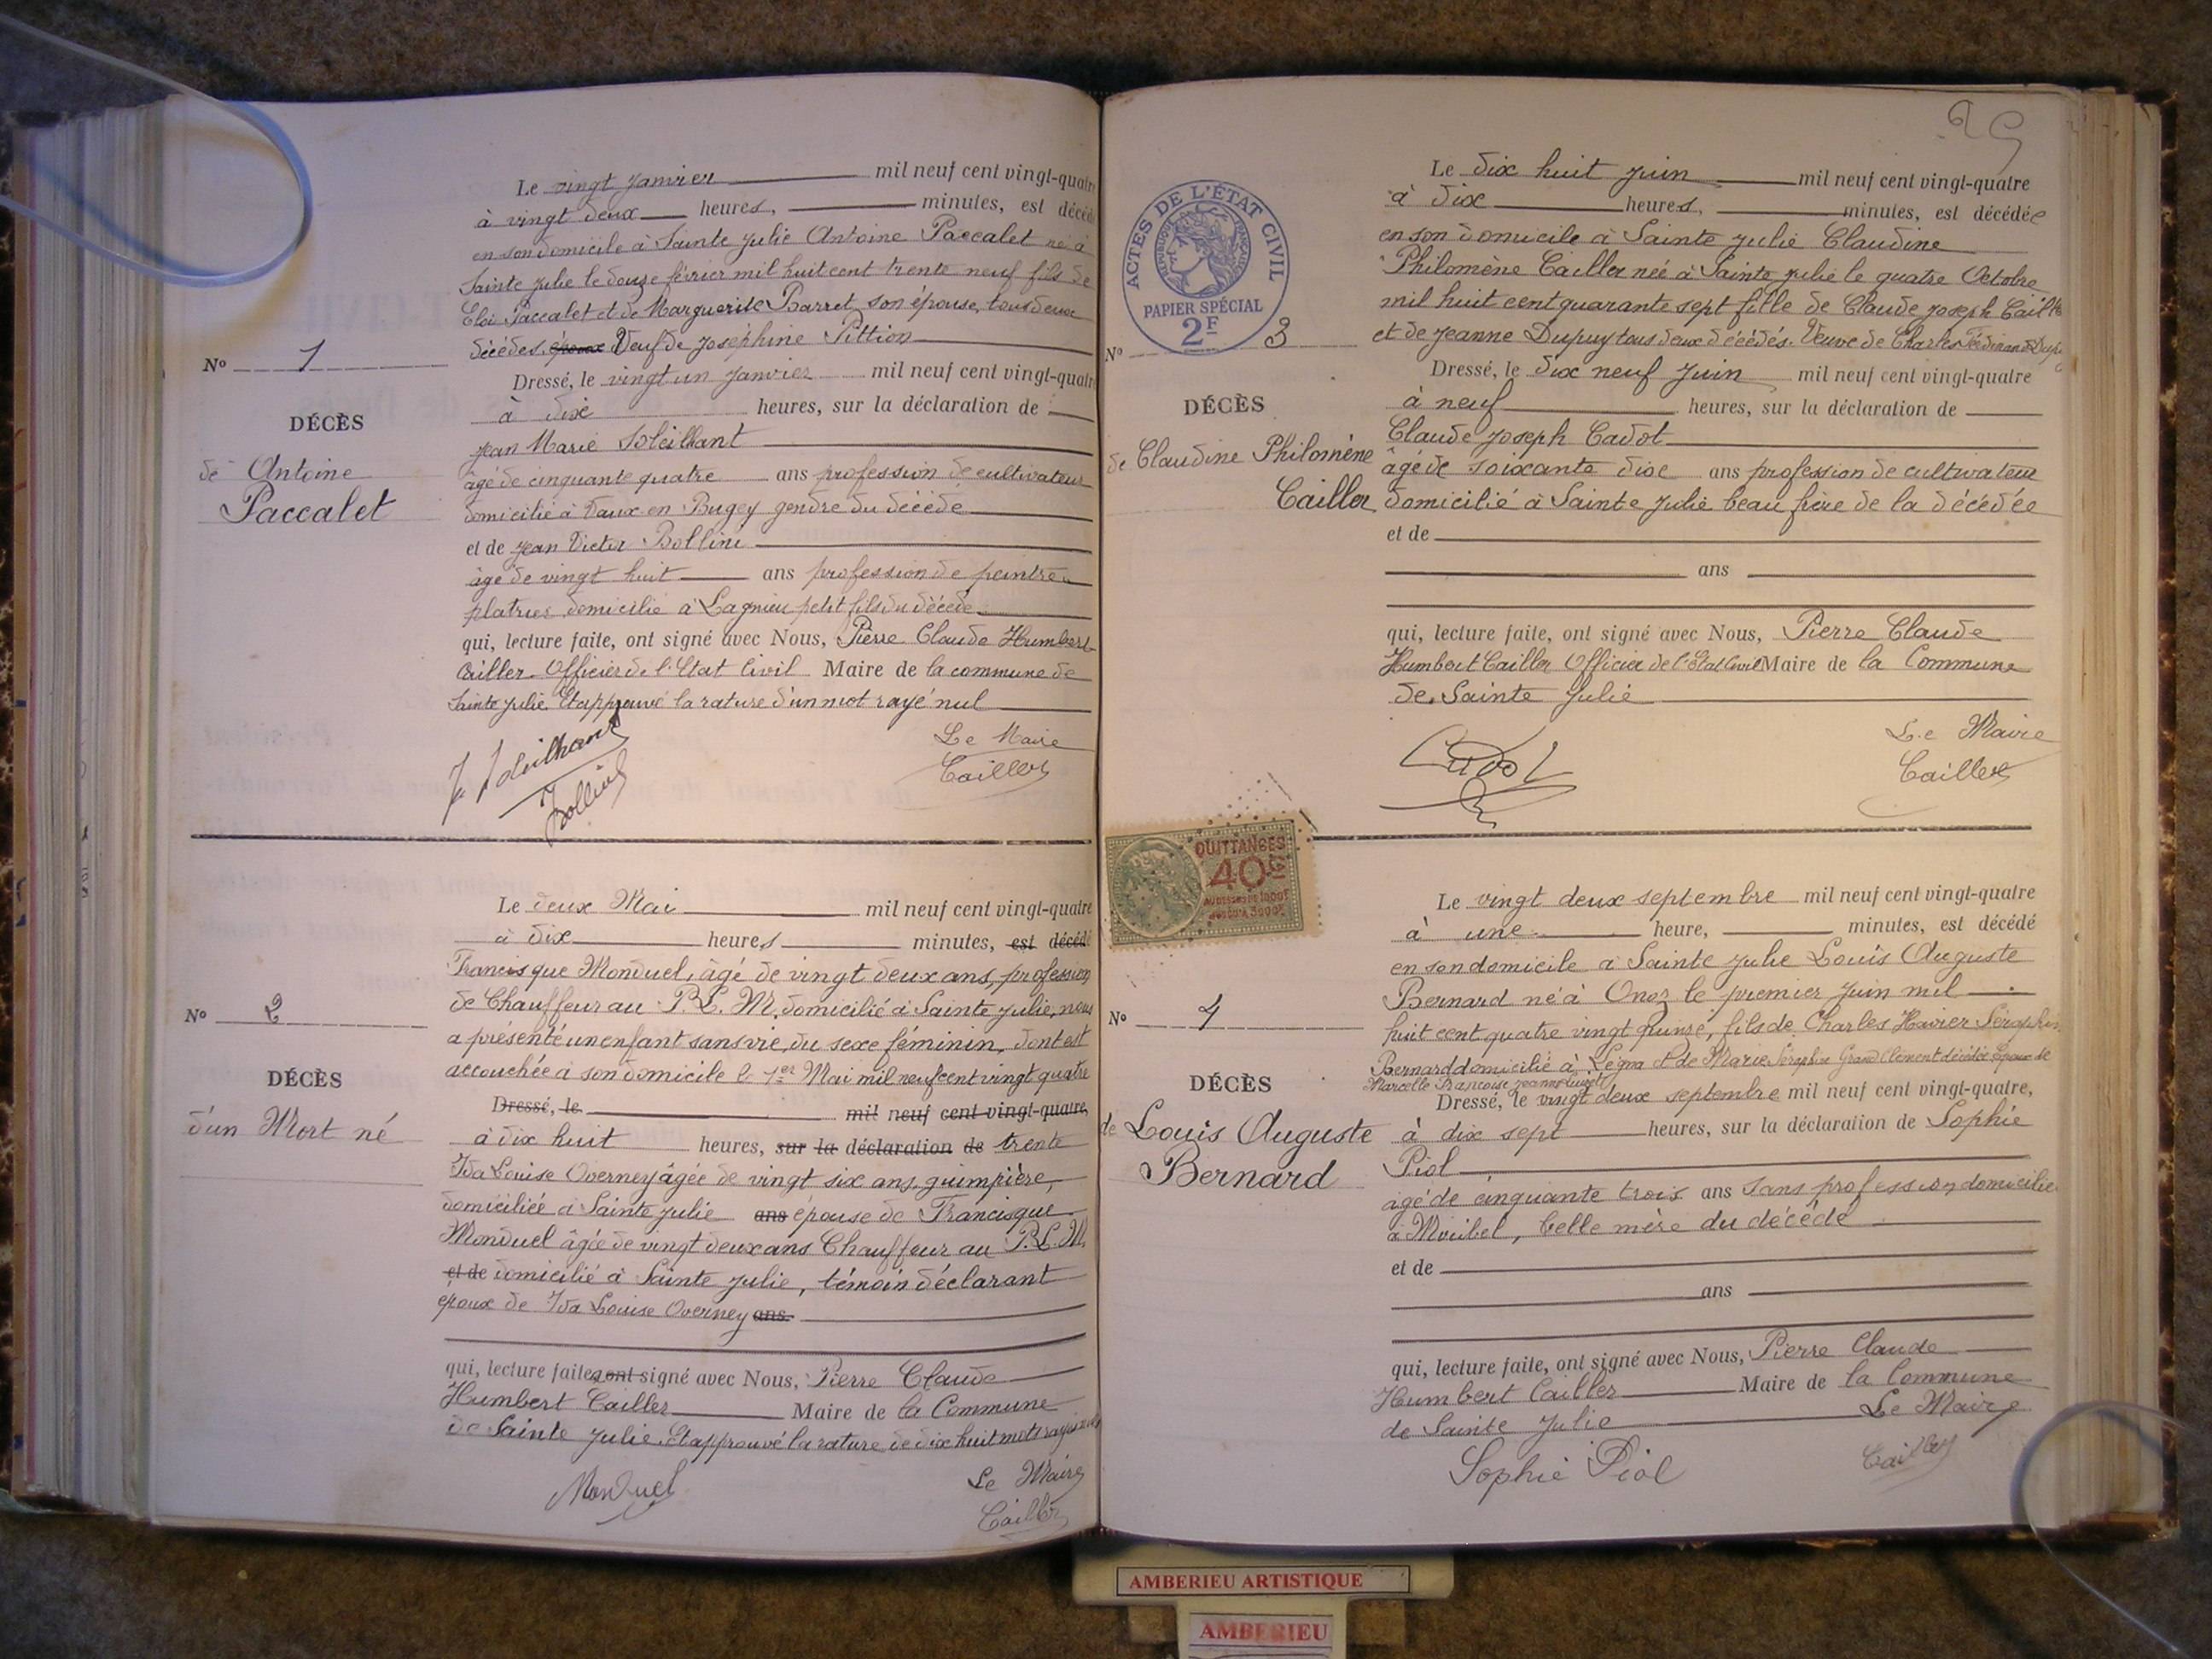 Le vingt janvier mil neuf cent vingt-quatre
à vingt deux heures, minutes, est décédé
en son domicile à Sainte Julie Antoine Paccalet né à
Sainte Julie le douze février mil huit cent trente neuf fils de
Eloi Paccalet et de Marguerite Barret son épouse, tous deux
décédés. époux Veuf de Joséphine Pittion
No 1
Dressé, le vingt un janvier mil neuf cent vingt-quatre
à dix heures, sur la déclaration de
DÉCÈS
Jean Marie Soleilhant
de Antoine
Paccalet
âgé de cinquante quatre ans profession de cultivateur
domicilié à Vaux en Bugey gendre du décédé
et de Jean Victor Bollini
âgé de vingt huit ans profession de peintre
platrier domicilié à Lagnieu petit fils du décédé
qui, lecture faite, ont signé avec Nous, Pierre Claude Humbert
Cailler Officier de l'Etat Civil Maire de la commune de
Sainte Julie. Et approuvé la rature d'un mot rayé nul
J Soleilhant
Le Maire
Cailler
Le deux Mai mil neuf cent vingt-quatre
à dix heures minutes, est décédé
Francisque Monduel, âgé de vingt deux ans, profession
de Chauffeur au P. L. M, domicilié à Sainte Julie, nous
No 2
a présenté un enfant sans vie, du sexe féminin, dont est
accouchée à son domicile le 1er Mai mil neuf cent vingt quatre
DÉCÈS
d'un Mort né
Dressé, le mil neuf cent vingt-quatre,
à dix huit heures, sur la déclaration de trente
Ida Louise Overney âgée de vingt six ans, guimpière,
domiciliée à Sainte Julie ans épouse de Francisque
Monduel âgée de vingt deux ans Chauffeur au P. L. M.
et de domicilié à Sainte Julie, témoin déclarant
époux de Ida Louise Overney ans.
qui, lecture faite, ont signé avec Nous, Pierre Claude
Humbert Cailler Maire de la Commune
de Sainte Julie. Et approuvé la rature de dix huit mots rayés
Monduel
Le Maire
Cailler
ACTES DE L'ÉTAT CIVIL
RÉPUBLIQUE FRANÇAISE
PAPIER SPÉCIAL
2F
Le dix huit juin mil neuf cent vingt-quatre
à dix heures, minutes, est décédée
en son domicile à Sainte Julie Claudine
Philomène Cailler née à Sainte Julie le quatre Octobre
mil huit cent quarante sept fille de Claude Joseph Cailler
No 3
et de Jeanne Dupuy tous deux décédés. Veuve de Charles Ferdinand
Dressé, le dix neuf juin mil neuf cent vingt-quatre
DÉCÈS
à neuf heures, sur la déclaration de
Claude Joseph Cadot
de Claudine Philomène
Cailler
âgé de soixante dix ans profession de cultivateur
domicilié à Sainte Julie beau frère de la décédée
et de
ans
qui, lecture faite, ont signé avec Nous, Pierre Claude
Humbert Cailler Officier de l'Etat Civil Maire de la Commune
de Sainte Julie
Cadot
Le Maire
Cailler
QUITTANCES
40c
AU DESSUS DE 1000F
JUSQU'À 3000F
Le vingt deux septembre mil neuf cent vingt-quatre
à une heure, minutes, est décédé
en son domicile à Sainte Julie Louis Auguste
Bernard né à Onoz le premier juin mil
No 4
huit cent quatre vingt quinze, fils de Charles Xavier Séraphin
Bernard domicilié à Légna et de Marie Séraphine Grand Clément décédée Epoux de
Marcelle Françoise Jeanne
DÉCÈS
Dressé, le vingt deux septembre mil neuf cent vingt-quatre,
de Louis Auguste
Bernard
à dix sept heures, sur la déclaration de Sophie
Piol
âgé de cinquante trois ans sans profession domicilié
à , belle mère du décédé
et de
ans
qui, lecture faite, ont signé avec Nous, Pierre Claude
Humbert Cailler Maire de la Commune
de Sainte Julie
Le Maire
Sophie Piol
Cailler
AMBERIEU ARTISTIQUE
AMBERIEU